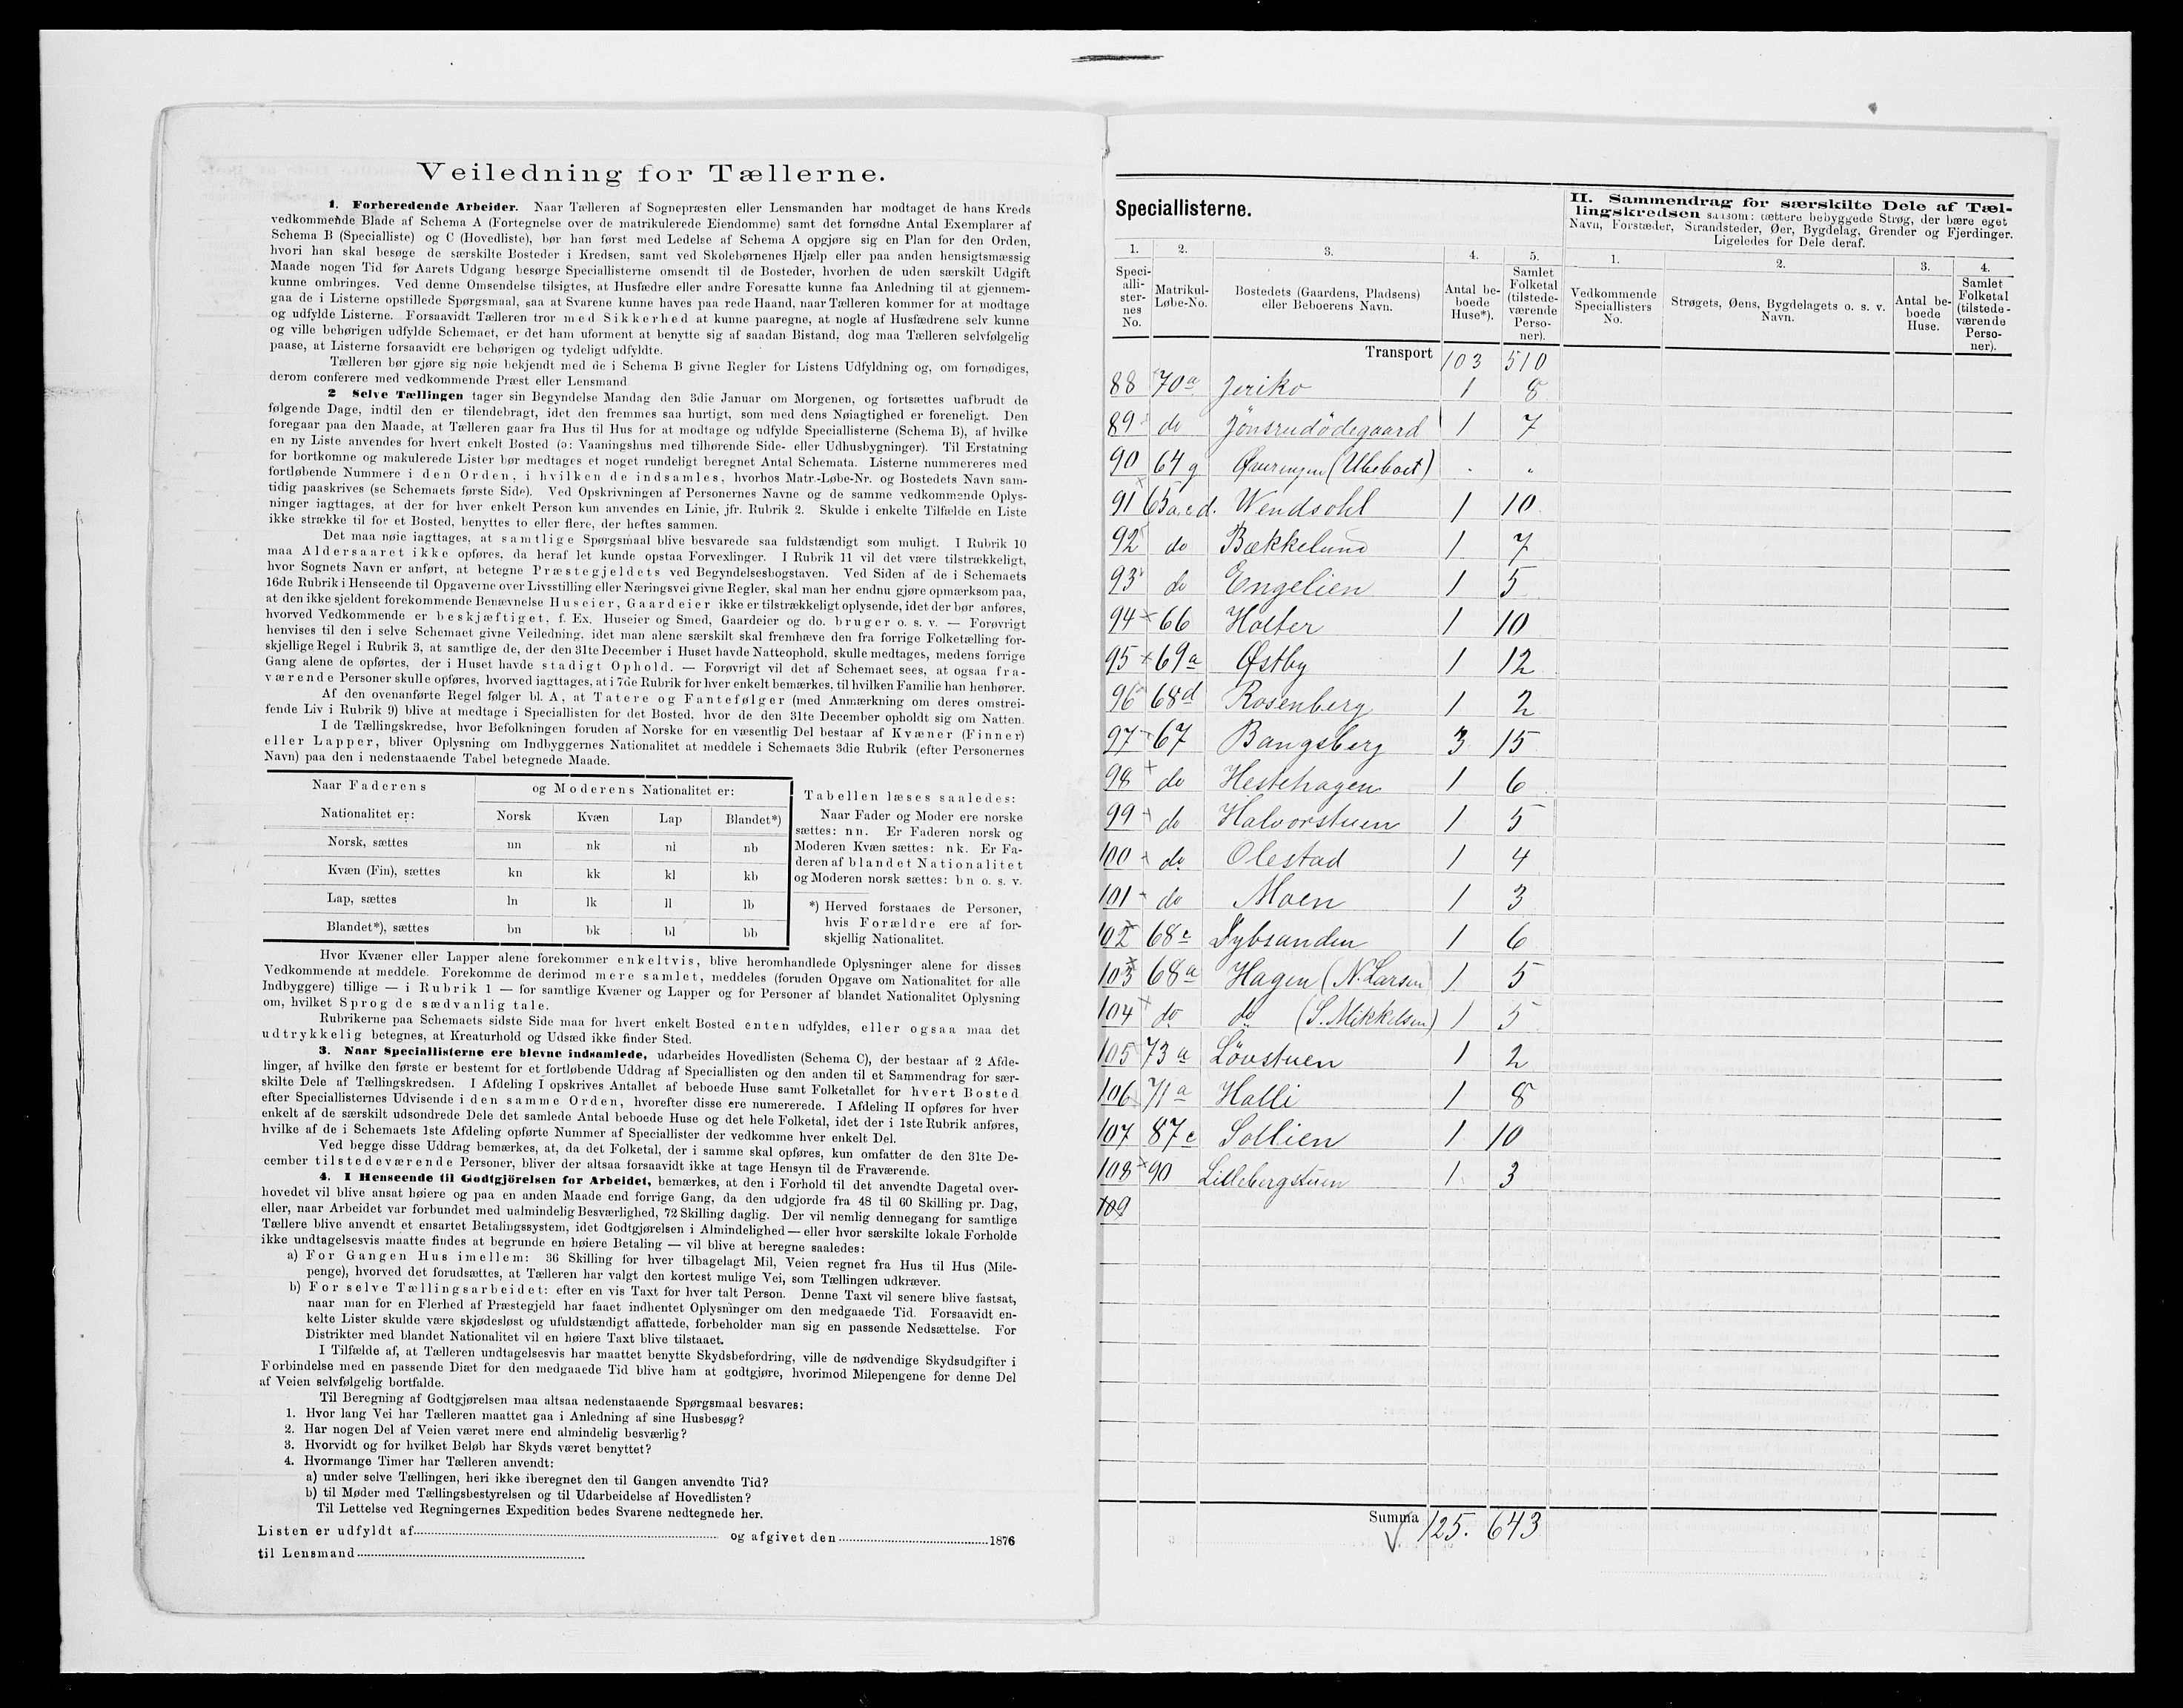 Veiledning for Tællerne.
1. Forberedende Arbeider. Naar Tælleren af Sognepræsten eller Lensmanden har modtaget de hans Kreds
vedkommende Blade af Schema A (Fortegnelse over de matrikulerede Eiendomme) samt det fornødne Antal Exemplarer af
Schema B (Specialliste) og C (Hovedliste), bør han først med Ledelse af Schema A opgjøre sig en Plan for den Orden,
hvori han skal besøge de særskilte Bosteder i Kredsen, samt ved Skolebørnenes Hjælp eller paa anden hensigtsmæssig
Maade nogen Tid før Aarets Udgang besørge Speciallisterne omsendt til de Bosteder, hvorhen de uden særskilt Udgift
kunne ombringes. Ved denne Omsendelse tilsigtes, at Husfædre eller andre Foresatte kunne faa Anledning til at gjennem-
gaa de i Listerne opstillede Spørgsmaal, saa at Svarene kunne haves paa rede Haand, naar Tælleren kommer for at modtage
og udfylde Listerne. Forsaavidt Tælleren tror med Sikkerhed at kunne paaregne, at nogle af Husfædrene selv kunne
og ville behørigen udfylde Schemaet, er det ham uforment at benytte sig af saadan Bistand, dog maa Tælleren selvfølgelig
paase, at Listerne forsaavidt ere behørigen og tydeligt udfyldte.
Tælleren bør gjøre sig nøie bekjendt med de i Schema B givne Regler for Listens Udfyldning og, om fornødiges,
derom conferere med vedkommende Præst eller Lensmand
2 Selve Tællingen tager sin Begyndelse Mandag den 3die Januar om Morgenen, og fortsættes uafbrudt de
følgende Dage, indtil den er tilendebragt, idet den fremmes saa hurtigt, som med dens Nøiagtighed er foreneligt. Den
foregaar paa den Maade, at Tælleren gaar fra Hus til Hus for at modtage og udfylde Speciallisterne (Schema B), af hvilke
en ny Liste anvendes for hvert enkelt Bosted (ɔ: Vaaningshus med tilhørende Side- eller Udhusbygninger). Til Erstatning
for bortkomne og makulerede Lister bør medtages et noget rundeligt beregnet Antal Schemata. Listerne nummereres med
fortløbende Nummere i den Orden, i hvilken de indsamles, hvorhos Matr.-Løbe-Nr. og Bostedets Navn sam-
tidig paaskrives (se Schemaets første Side). Ved Opskrivningen af Personernes Navne og de samme vedkommende Oplys-
ninger iagttages, at der for hver enkelt Person kun anvendes en Linie, jfr. Rubrik 2. Skulde i enkelte Tilfælde en Liste
ikke strække til for et Bosted, benyttes to eller flere, der heftes sammen.
Det maa nøie iagttages, at samtlige Spørgsmaal blive besvarede saa fuldstændigt som muligt. I Rubrik 10
maa Aldersaaret ikke opføres, da heraf let kunde opstaa Forvexlinger. I Rubrik 11 vil det være tilstrækkeligt,
hvor Sognets Navn er anført, at betegne Præstegjeldets ved Begyndelsesbogstaven. Ved Siden af de i Schemaets
16de Rubrik i Henseende til Opgaverne over Livsstilling eller Næringsvei givne Regler, skal man her endnu gjøre opmærksom paa,
at den ikke sjeldent forekommende Benævnelse Huseier, Gaardeier ikke er tilstrækkeligt oplysende, idet der bør anføres,
hvorved Vedkommende er beskjæftiget, f. Ex. Huseier og Smed, Gaardeier og do. bruger o. s. v. — Forøvrigt
henvises til den i selve Schemaet givne Veiledning, idet man alene særskilt skal fremhæve den fra forrige Folketælling for-
skjellige Regel i Rubrik 3, at samtlige de, der den 31te December i Huset havde Natteophold, skulle medtages, medens forrige
Gang alene de opførtes, der i Huset havde stadigt Ophold. — Forøvrigt vil det af Schemaet sees, at ogsaa fra-
værende Personer skulle opføres, hvorved iagttages, at i 7de Rubrik for hver enkelt bemærkes, til hvilken Familie han henhører.
Af den ovenanførte Regel følger bl. A, at Tatere og Fantefølger (med Anmærkning om deres omstrei-
fende Liv i Rubrik 9) blive at medtage i Speciallisten for det Bosted, hvor de den 31te December opholdt sig om Natten.
I de Tællingskredse, hvor Befolkningen foruden af Norske for en væsentlig Del bestaar af Kvæner (Finner)
eller Lapper, bliver Oplysning om Indbyggernes Nationalitet at meddele i Schemaets 3die Rubrik (efter Personernes
Navn) paa den i nedenstaaende Tabel betegnede Maade.
Naar Faderens og Moderens Nationalitet er:
Nationalitet er: Norsk Kvæn Lap Blandet*)
Norsk, sættes nn nk nl nb
Kvæn (Fin), sættes kn kk kl kb
Lap, sættes ln lk ll lb
Blandet*), sættes bn bk bl bb
Tabellen læses saaledes:
Naar Fader og Moder ere norske
sættes: nn. Er Faderen norsk og
Moderen Kvæn sættes: nk. Er Fa-
deren af blandet Nationalitet
og Moderen norsk sættes: bn o. s. v.
*) Herved forstaaes de Personer,
hvis Forældre ere af for-
skjellig Nationalitet.
Hvor Kvæner eller Lapper alene forekommer enkeltvis, blive heromhandlede Oplysninger alene for disses
Vedkommende at meddele. Forekomme de derimod mere samlet, meddeles (foruden Opgave om Nationalitet for alle
Indbyggere) tillige — i Rubrik 1 — for samtlige Kvæner og Lapper og for Personer af blandet Nationalitet Oplysning
om, hvilket Sprog de sædvanlig tale.
Rubrikerne paa Schemaets sidste Side maa for hvert enkelt Bosted enten udfyldes, eller ogsaa maa det
udtrykkelig betegnes, at Kreaturhold og Udsæd ikke finder Sted.
3. Naar Speciallisterne ere blevne indsamlede, udarbeides Hovedlisten (Schema C), der bestaar af 2 Afde-
linger, af hvilke den første er bestemt for et fortløbende Uddrag af Speciallisten og den anden til et Sammendrag for sær-
skilte Dele af Tællingskredsen. I Afdeling I opskrives Antallet af beboede Huse samt Folketallet for hvert Bosted
efter Speciallisternes Udvisende i den samme Orden, hvorefter disse ere numererede. I Afdeling II opføres for hver
enkelt af de særskilt udsondrede Dele det samlede Antal beboede Huse og det hele Folketal, idet der i 1ste Rubrik anføres,
hvilke af de i Schemaets 1ste Afdeling opførte Nummer af Speciallister der vedkomme hver enkelt Del.
Ved begge disse Uddrag bemærkes, at, da det Folketal, der i samme skal opføres, kun omfatter de den 31te De-
cember tilstedeværende Personer, bliver der altsaa forsaavidt ikke at tage Hensyn til de Fraværende.
4. I Henseende til Godtgjörelsen for Arbeidet, bemærkes, at den i Forhold til det anvendte Dagetal over-
hovedet vil blive ansat høiere og paa en anden Maade end forrige Gang, da den udgjorde fra 48 til 60 Skilling pr. Dag,
eller, naar Arbeidet var forbundet med ualmindelig Besværlighed, 72 Skilling daglig. Der vil nemlig dennegang for samtlige
Tællere blive anvendt et ensartet Betalingssystem, idet Godtgjørelsen i Almindelighed — eller hvor særskilte lokale Forholde
ikke undtagelsesvis maatte findes at begrunde en høiere Betaling — vil blive at beregne saaledes:
a) For Gangen Hus imellem: 36 Skilling for hver tilbagelagt Mil, Veien regnet fra Hus til Hus (Mile-
penge), hvorved det forudsættes, at Tælleren har valgt den kortest mulige Vei, som Tællingen udkræver.
b) For selve Tællingsarbeidet: efter en vis Taxt for hver talt Person. Denne Taxt vil senere blive fastsat,
naar man for en Flerhed af Præstegjeld har faaet indhentet Oplysninger om den medgaaede Tid. Forsaavidt en-
kelte Lister skulde være skjødesløst og ufuldstændigt affattede, forbeholder man sig en passende Nedsættelse. For
Distrikter med blandet Nationalitet vil en høiere Taxt blive tilstaaet.
I Tilfælde af, at Tælleren undtagelsesvis har maattet benytte Skydsbefordring, ville de nødvendige Skydsudgifter i
Forbindelse med en passende Diæt for den medgaaede Tid blive ham at godtgjøre, hvorimod Milepengene for denne Del
af Veien selvfølgelig bortfalde.
Til Beregning af Godtgjørelsen maa altsaa nedenstaaende Spørgsmaal besvares:
1. Hvor lang Vei har Tælleren maattet gaa i Anledning af sine Husbesøg?
2. Har nogen Del af Veien været mere end almindelig besværlig?
3. Hvorvidt og for hvilket Beløb har Skyds været benyttet?
4. Hvormange Timer har Tælleren anvendt:
a) under selve Tællingen, heri ikke iberegnet den til Gangen anvendte Tid?
b) til Møder med Tællingsbestyrelsen og til Udarbeidelse af Hovedlisten?
Til Lettelse ved Regningernes Expedition bedes Svarene nedtegnede her.
Listen er udfyldt af og afgivet den 1876
til Lensmand
Speciallisterne.
II. Sammendrag for særskilte Dele af Tæl-
lingskredsen saasom: tættere bebyggede Strøg, der bære eget
Navn, Forstæder, Strandsteder, Øer, Bygdelag, Grender og Fjerdinger.
Ligeledes for Dele deraf.
1. 2. 3. 4. 5. 1. 2. 3. 4.
Speci-
alli-
ster-
nes
No.
Matrikul-
Løbe-No.
Bostedets (Gaardens, Pladsens)
eller Beboerens Navn.
Antal be-
boede
Huse*).
Samlet
Folketal
(tilstede-
værende
Perso-
ner).
Vedkommende
Speciallisters
No.
Strøgets, Øens, Bygdelagets o. s. v.
Navn.
Antal be-
boede
Huse.
Samlet
Folketal
(tilstede-
værende
Perso-
ner).
Transport 103 510
88 70a Jeriko 1 8
89 do Jönsrudödegaard 1 7
90 64g Øveringen (Ubeboet) " "
91 65a.c.d. Wendsohl 1 10
92 do Bækkelund 1 7
93 do Engelien 1 5
94 66 Holter 1 10
95 69a Østby 1 12
96 68d Rosenberg 1 2
97 67 Bangsberg 3 15
98 do Hestehagen 1 6
99 do Halvorstuen 1 5
100 do Olestad 1 4
101 do Moen 1 3
102 68c Dybsanden 1 6
103 68a Hagen (N. Larsen 1 5
104 do do (S. Mikkelsen) 1 5
105 73a Lövstuen 1 2
106 71a Holli 1 8
107 87c Sollien 1 10
108 90 Lillebergstuen 1 3
109
Summa 125. 643